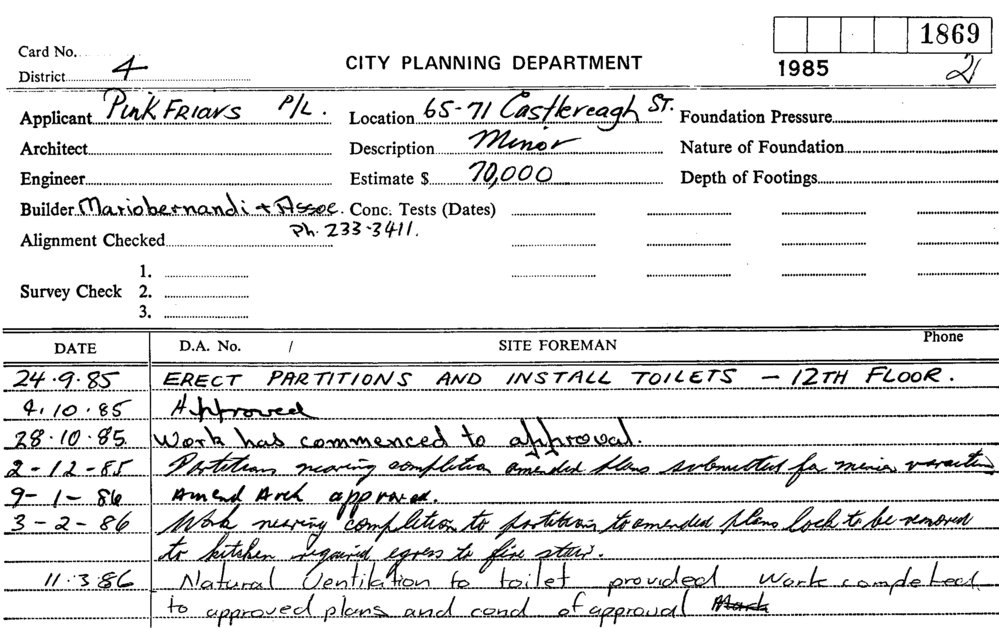 1869
Card No.
1985 2
District 4 CITY PLANNING DEPARTMENT
Applicant Pink FRIARS P/L. Location 65-71 Castlereagh ST. Foundation Pressure
Architect Description Minor Nature of Foundation
Engineer Estimate $ 70,000 Depth of Footings
Builder Mariobernandi + Assoc. Conc. Tests (Dates)
Ph. 233-3411.
Alignment Checked
1.
Survey Check 2.
3.
DATE D.A. No. / SITE FOREMAN Phone
24.9.85 ERECT PARTITIONS AND INSTALL TOILETS — 12TH FLOOR.
4.10.85 Approved
28.10.85. Work has commenced to approval.
2-12-85 Partitions nearing completion amended plans submitted for minor variation
9-1-86 Amend Arch approved.
3-2-86 Work nearing completion to partitions to amended plans lock to be removed
to kitchen required egress to fire stair.
11.3.86 Natural Ventilation to toilet provided Work completed
to approved plans and cond of approval